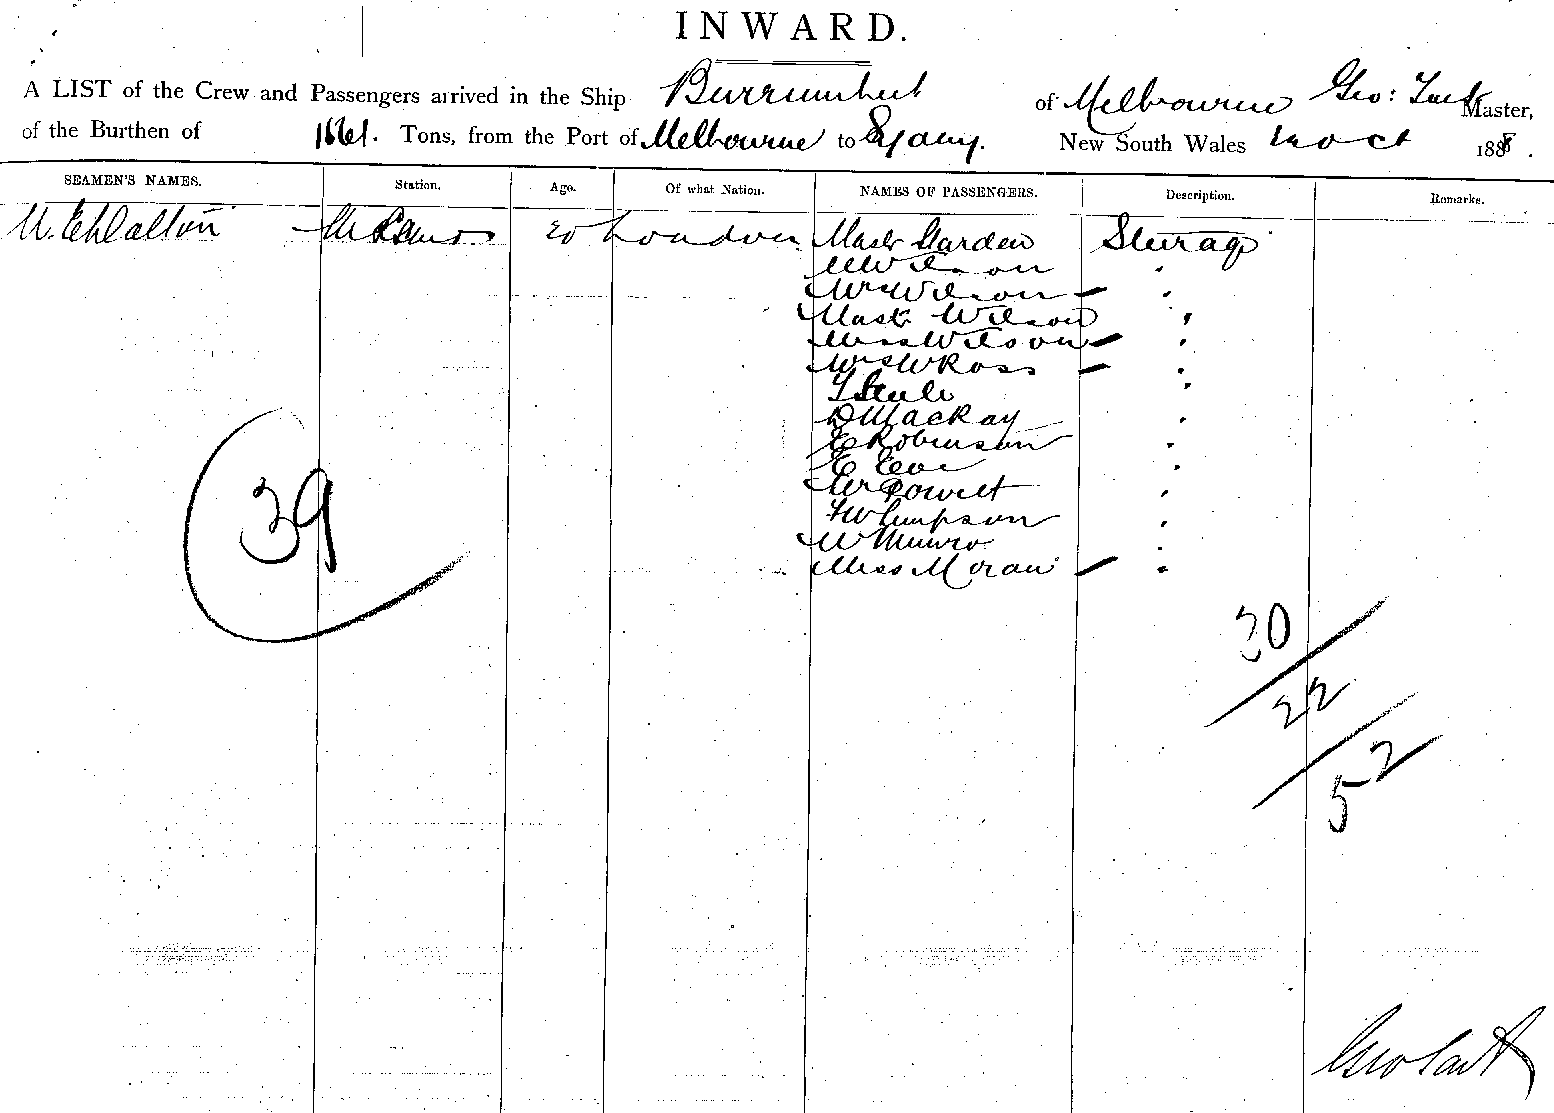 INWARD.
A LIST of the Crew and Passengers arrived in the Ship Burrumbeet of Melbourne Geo: Tait Master,
of the Burthen of Tons, from the Port of Melbourne to Sydney. New South Wales Oct 1888.
SEAMEN'S NAMES. Station. Age. Of what Nation. NAMES OF PASSENGERS. Description. Remarks.
Dalton 20 London Mastr Garden Steerage
M Wilson
Mrs Wilson
Mastr Wilson
Miss Wilson
Mrs W Ross
T Steele
D Mackay
E Robinson
E Eve
Mr Powell
W Simpson
W Munro
Miss Moran
39
30
22
52
Geo Tait